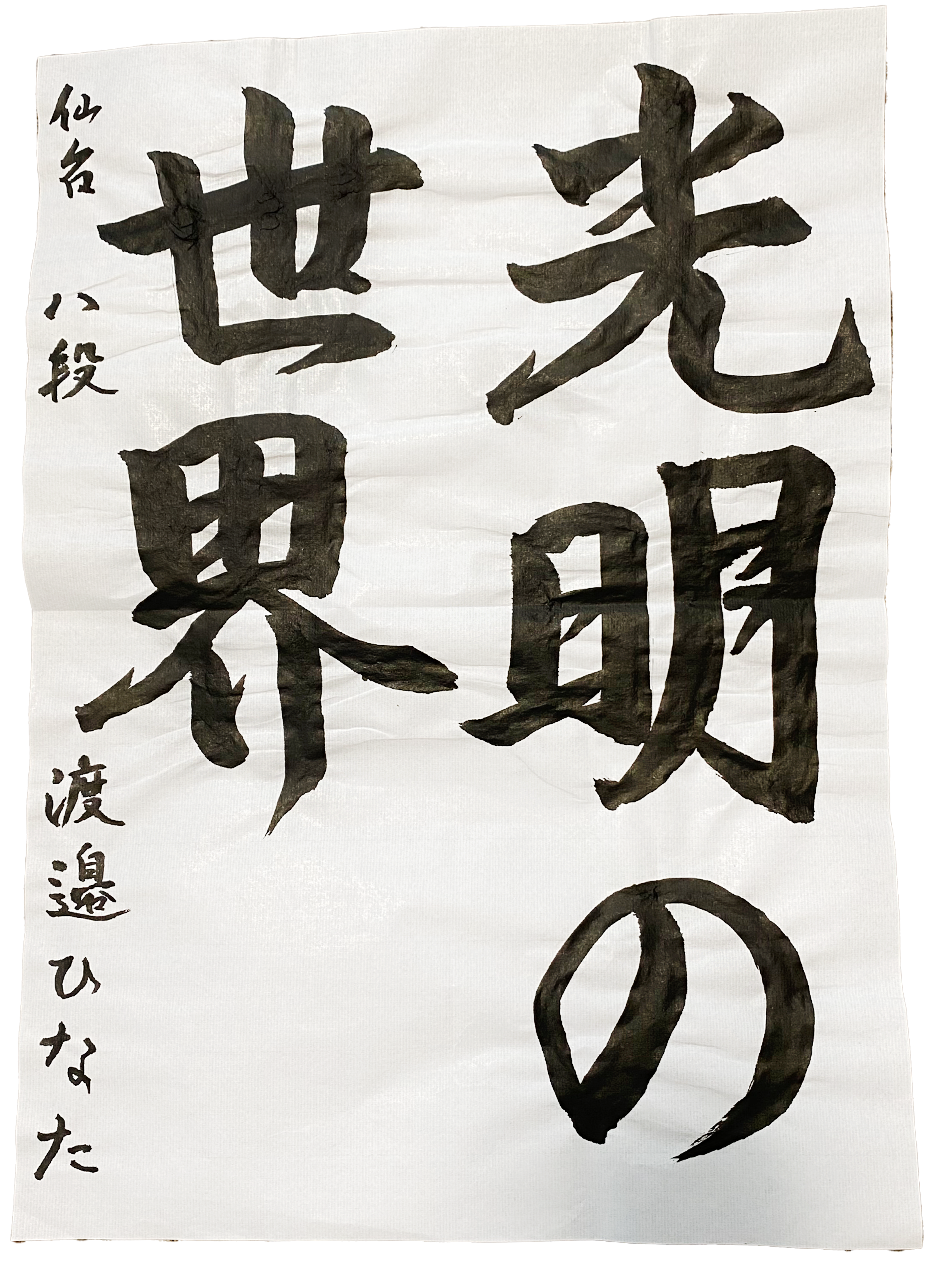 光明の
世界
仙台 八段 渡邉ひなた